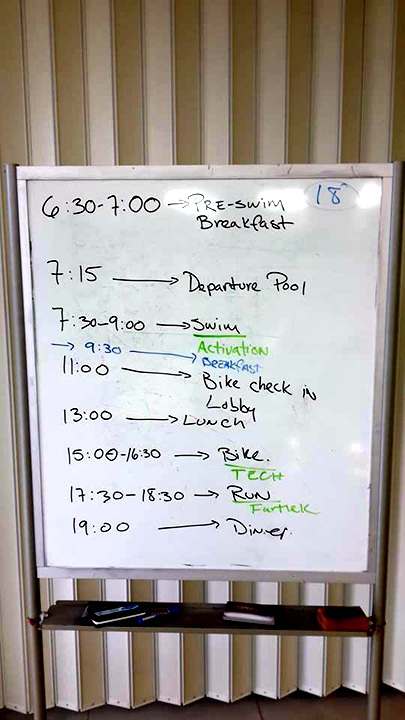 18
6:30-7:00 → PRE-SWIM
Breakfast
7:15 → Departure Pool
7:30-9:00 → Swim
Activation
→ 9:30 → BREAKFAST
11:00 → Bike check in
Lobby
13:00 → LUNCH
15:00-16:30 → Bike.
TECH
17:30-18:30 → RUN
Fartlek
19:00 → Dinner.